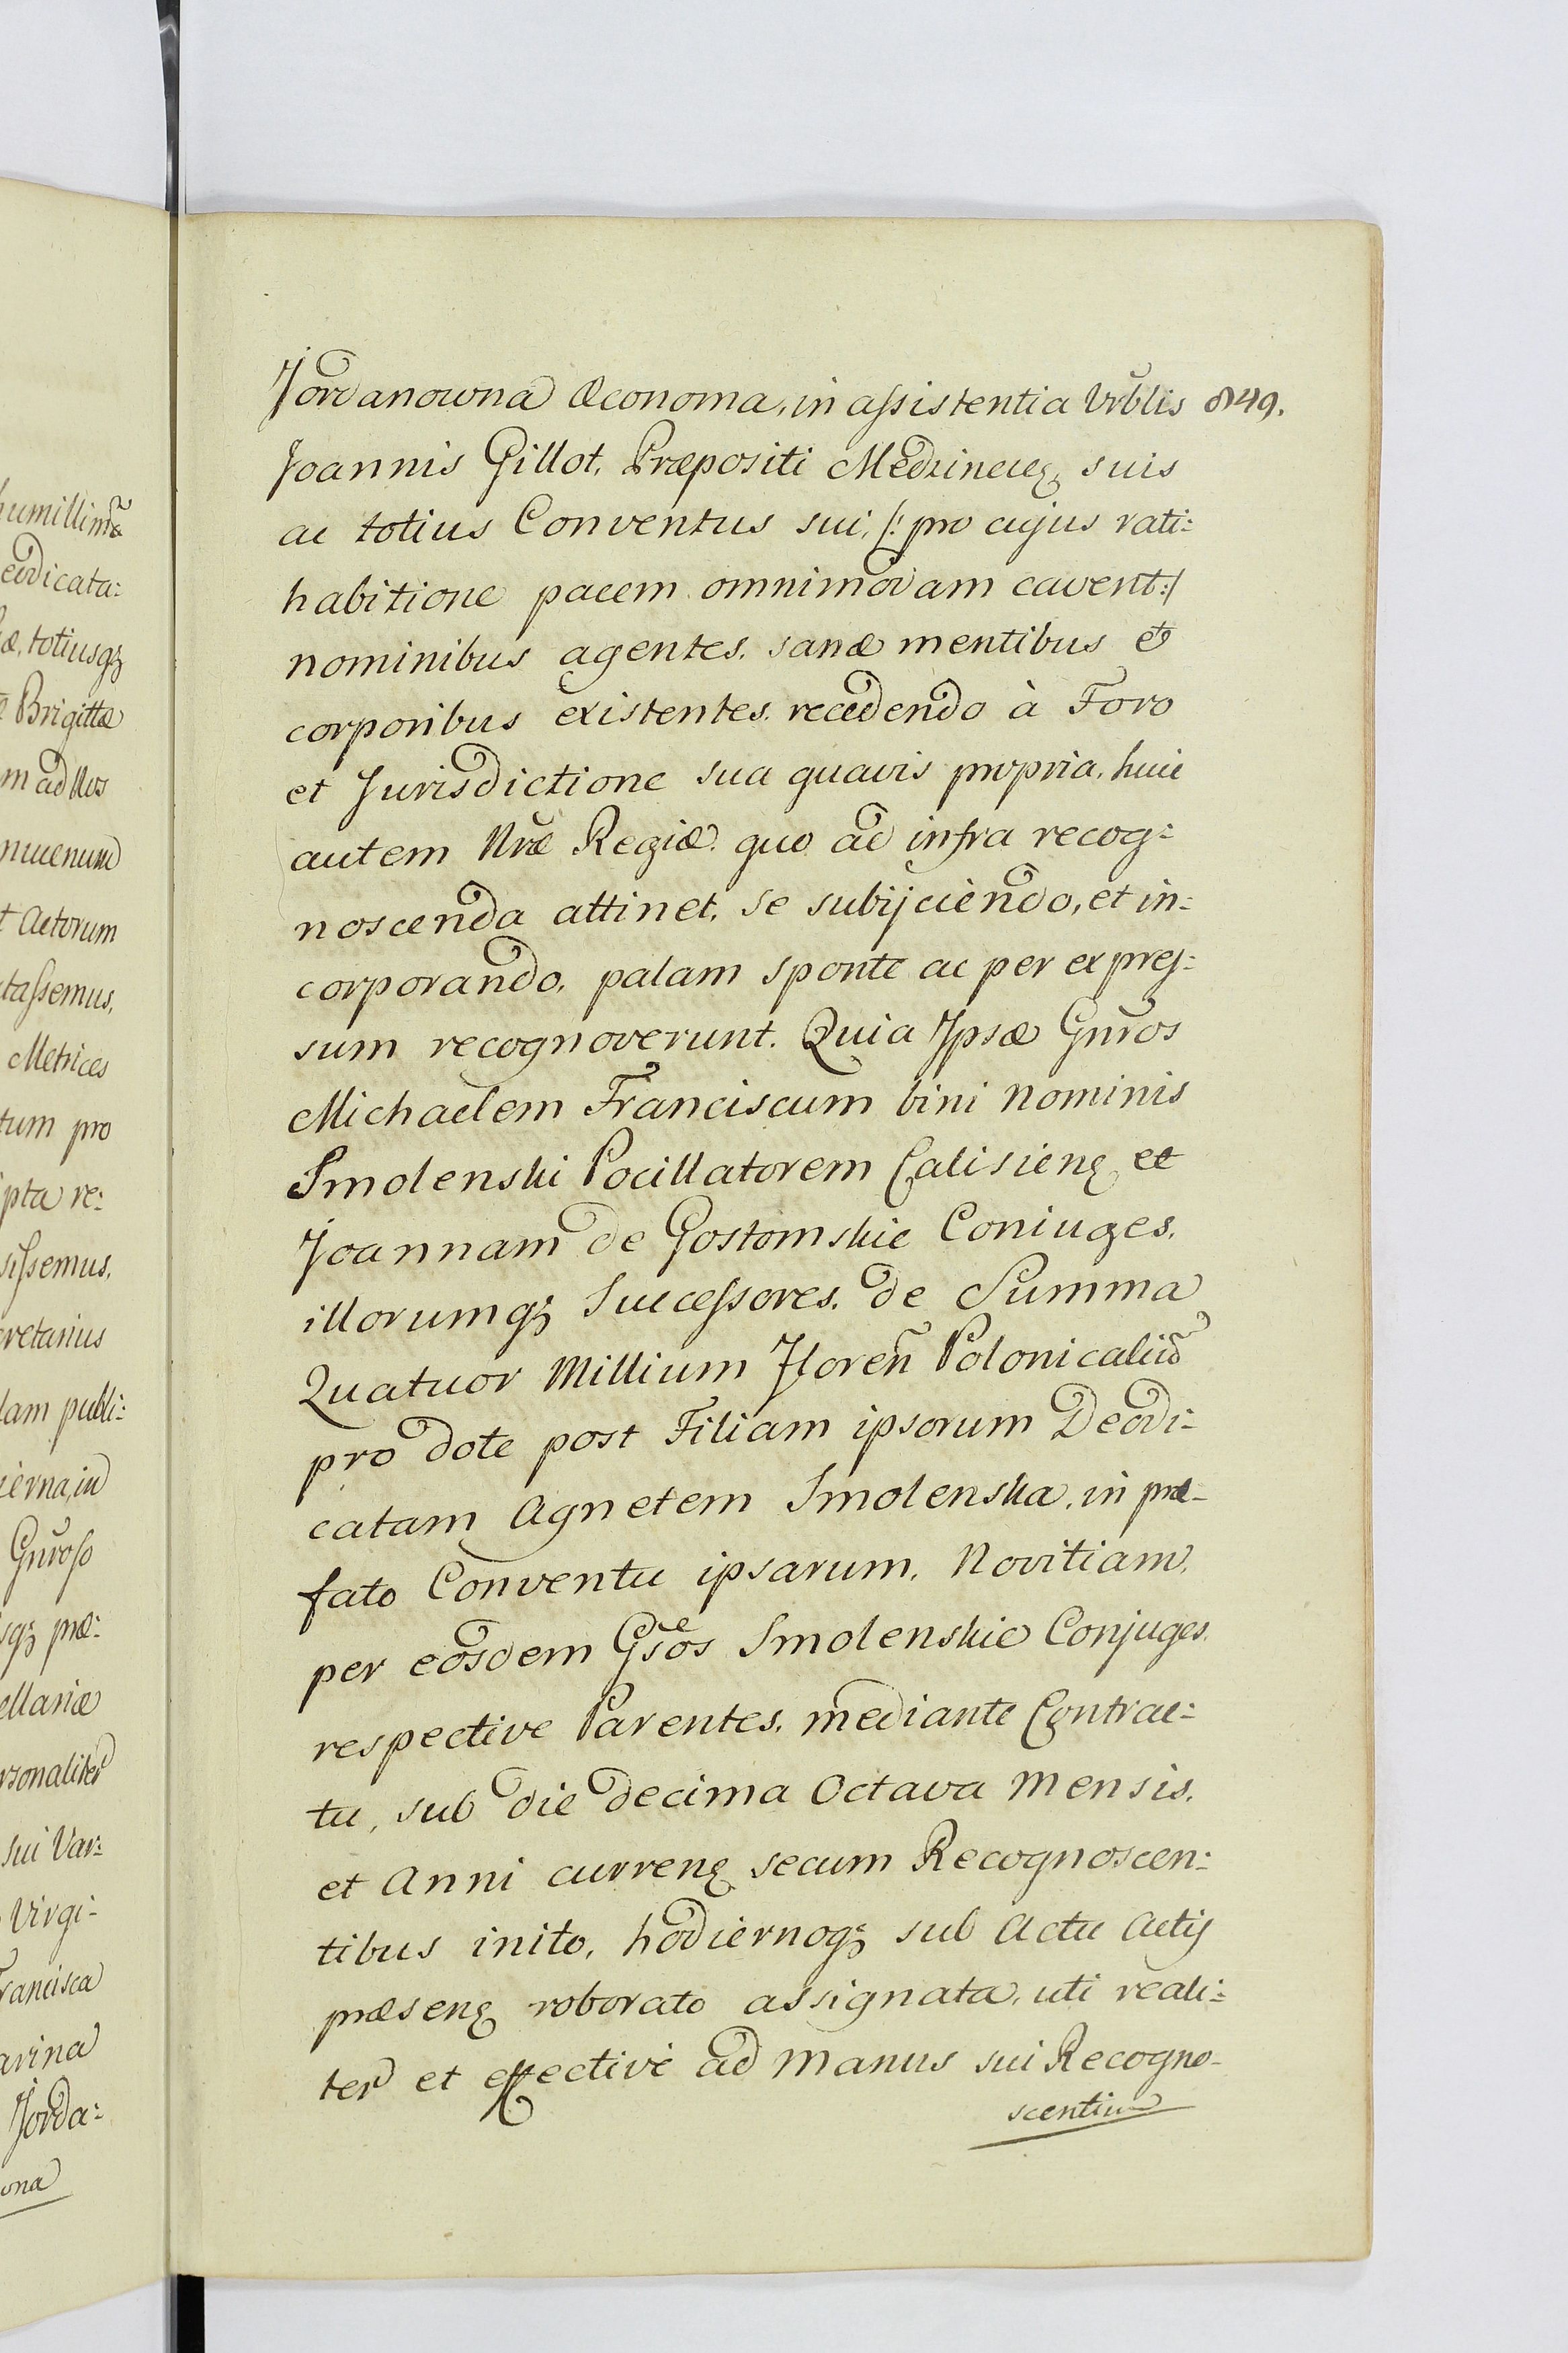 humillimã
eodicata:
æ, totiusqȝ
e Brigittæ
m ad Nos
t Actorum
tassemus,
Metrices
tum pro
pta re:
sissemus,
cretarius
lam publi:
ierna, in
Gnroso
sqȝ præ:
ellariæ
rsonaliter
sui Var:
Virgi-
rancisca
arina
Jorda:
ona
849.
Jordanowna Œconoma, in assistentia Vrblis
Joannis Gillot, Præpositi Medzineceȝ, suis
ac totius Conventus sui, /: pro cujus rati:
habitione pacem omnimodam cavent :/
nominibus agentes, sanæ mentibus et
corporibus existentes, recedendo à Foro
et Jurisdictione sua quavis propria, huic
autem Nræ Regiæ quo ad infra recog:
noscenda attinet, se subijciendo, et in:
corporando, palam sponte ac per expres:
sum recognoverunt. Quia Jpsæ Gnros
Michaelem Franciscum bini nominis
Smolenski Pocillatorem Calisienȝ et
Joannam de Gostomskie Coniuges,
illorumqȝ Successores, de Summa
Quatuor Millium Floreñ Polonicaliũ
pro dote post Filiam ipsorum Deodi:
catam Agnetem Smolenska, in præ-
fato Conventu ipsarum, Novitiam,
per eosdem Gsos Smolenskie Conjuges,
respective Parentes, mediante Contrac:
tu, sub die decima Octava Mensis,
et Anni currenȝ secum Recognoscen:
tibus inito, hodiernoqȝ sub Actu Actis
præsenȝ roborato assignata, uti reali:
ter et effectivè ad manus sui Recogno-
scentium